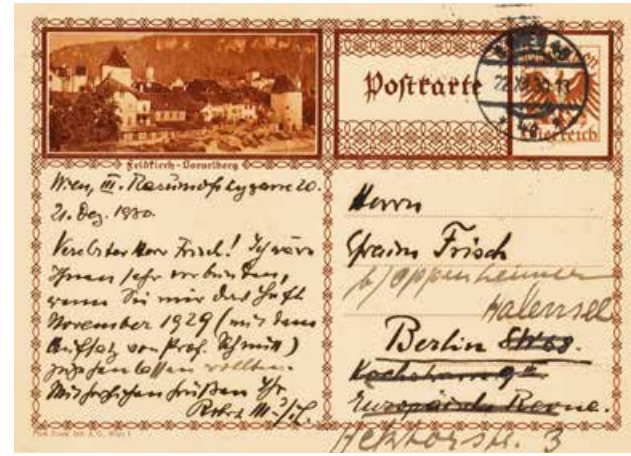 Postkarte
Österreich
Feldkirch-Vorarlberg
Wien, III. Rasumofskygasse 20.
21. Dez. 1930.
Verehrter Herr Frisch! Ich wäre
Ihnen sehr verbunden,
wenn Sie mir das Heft
November 1929 (mit dem
Aufsatz von Prof. Schmitt)
zugehen lassen wollten.
Mit herzlichen Grüßen Ihr
Robert Musil.
Herrn
Efraim Frisch
b/ Oppenheimer
Halensee
Berlin SW 68.
Kochstrasse 9
Europäische Revue.
Hektorstr. 3